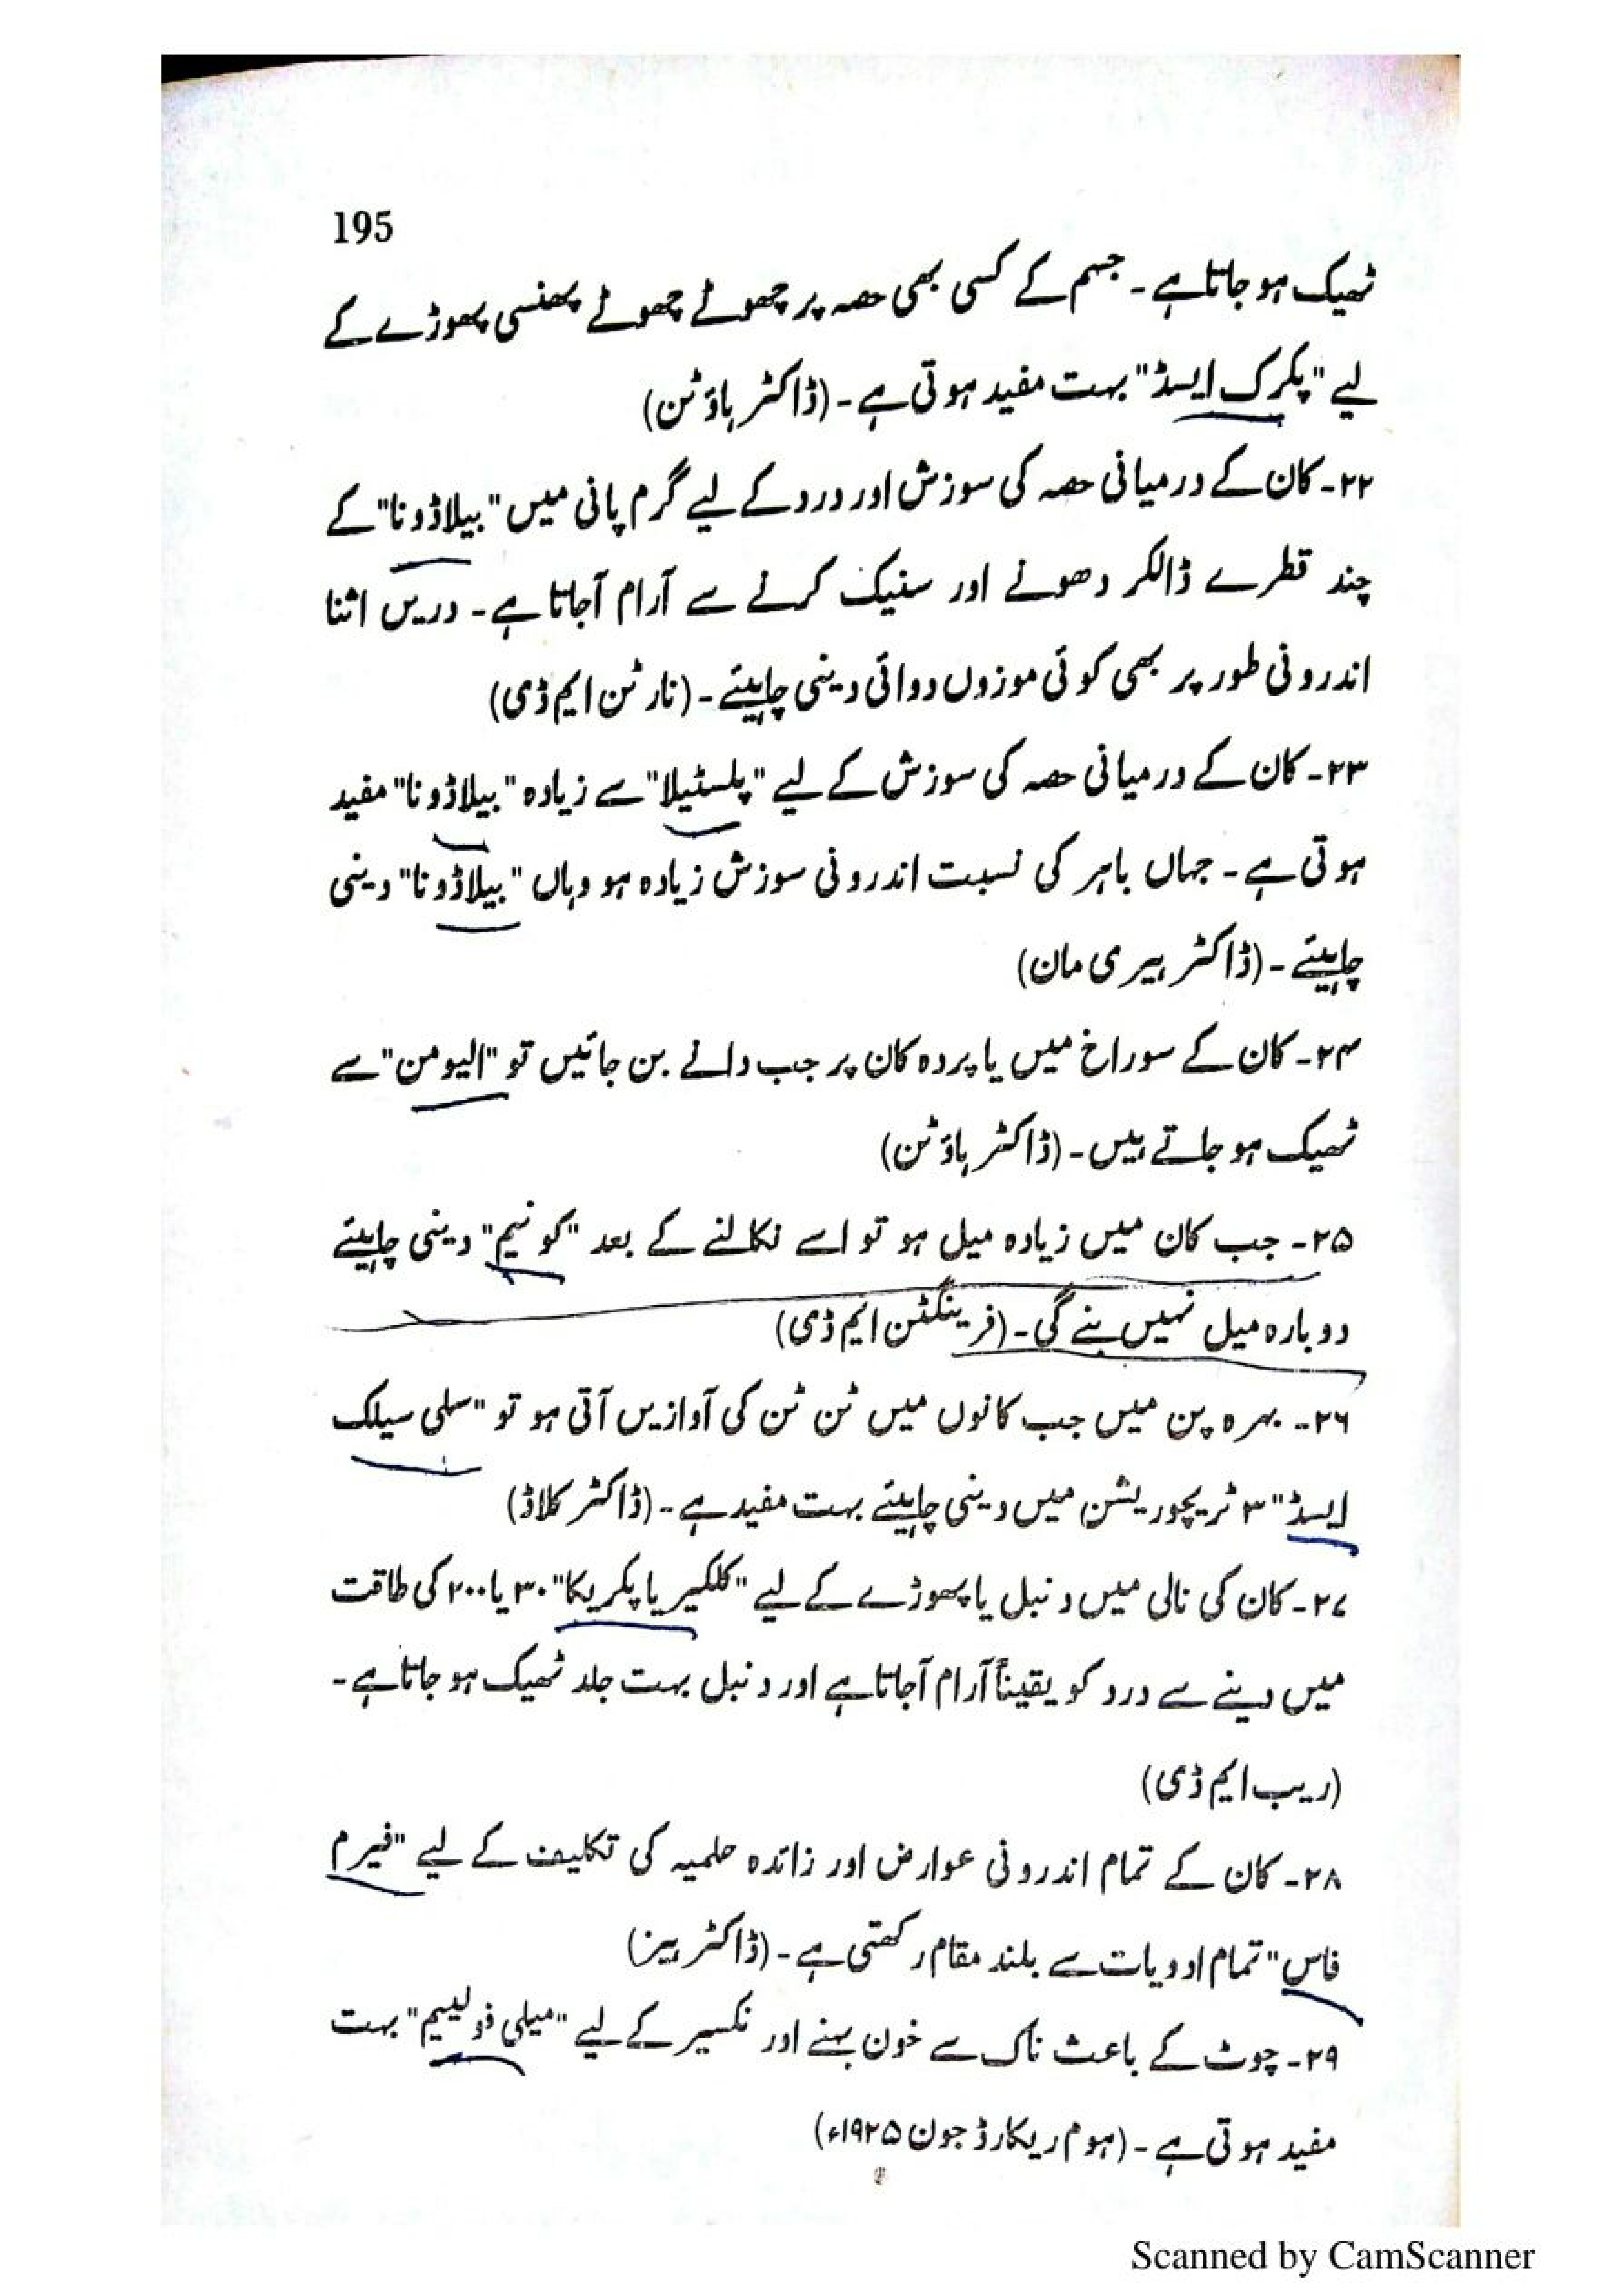 195
ٹھیک ہو جاتا ہے۔ جسم کے کسی بھی حصہ پر چھوٹے چھوٹے پھنسی پھوڑے کے
لیے "پکرک ایسڈ" بہت مفید ہوتی ہے۔ (ڈاکٹر ہاؤٹن)
۲۲۔ کان کے درمیانی حصہ کی سوزش اور درد کے لیے گرم پانی میں "بیلاڈونا" کے
چند قطرے ڈالکر دھونے اور سنیک کرنے سے آرام آجاتا ہے۔ دریں اثنا
اندرونی طور پر بھی کوئی موزوں دوائی دینی چاہیئے۔ (نارٹن ایم ڈی)
۲۳۔ کان کے درمیانی حصہ کی سوزش کے لیے "پلسٹیلا" سے زیادہ "بیلاڈونا" مفید
ہوتی ہے۔ جہاں باہر کی نسبت اندرونی سوزش زیادہ ہو وہاں "بیلاڈونا" دینی
چاہیئے۔ (ڈاکٹر ہیری مان)
۲۴۔ کان کے سوراخ میں یا پردہ کان پر جب دانے بن جائیں تو "الیومن" سے
ٹھیک ہو جاتے ہیں۔ (ڈاکٹر ہاؤٹن)
۲۵۔ جب کان میں زیادہ میل ہو تو اسے نکالنے کے بعد "کونیم" دینی چاہیئے
دوبارہ میل نہیں بنے گی۔ (فرینگٹن ایم ڈی)
۲۶۔ بہرہ پن میں جب کانوں میں ٹن ٹن کی آوازیں آتی ہو تو "سلی سیلک
ایسڈ" ۳ ٹریچوریشن میں دینی چاہیئے بہت مفید ہے۔ (ڈاکٹر کلاڈ)
۲۷۔ کان کی نالی میں دنبل یا پھوڑے کے لیے "کلکیر یا پکریکا" ۳۰ یا ۲۰۰ کی طاقت
میں دینے سے درد کو یقیناً آرام آجاتا ہے اور دنبل بہت جلد ٹھیک ہو جاتا ہے۔
(ریب ایم ڈی)
۲۸۔ کان کے تمام اندرونی عوارض اور زائدہ حلمیہ کی تکلیف کے لیے "فیرم
فاس" تمام ادویات سے بلند مقام رکھتی ہے۔ (ڈاکٹر ہیز)
۲۹۔ چوٹ کے باعث ناک سے خون بہنے اور نکسیر کے لیے "میلی فولیم" بہت
مفید ہوتی ہے۔ (ہوم ریکارڈ جون ۱۹۲۵ء)
Scanned by CamScanner